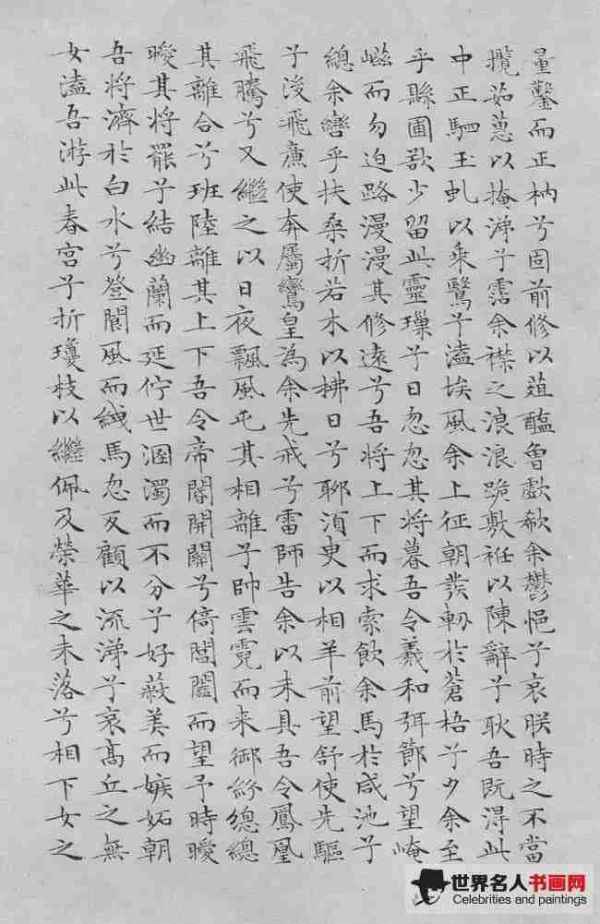 量鑿而正枘兮固前修以葅醢曾歔欷余鬱悒兮哀朕時之不當
攬茹蕙以掩涕兮霑余襟之浪浪跪敷衽以陳辭兮耿吾既得此
中正駟玉虬以乘鷖兮溘埃風余上征朝發軔於蒼梧兮夕余至
乎縣圃欲少留此靈瑣兮日忽忽其將暮吾令羲和弭節兮望崦
嵫而勿迫路漫漫其修遠兮吾將上下而求索飲余馬於咸池兮
總余轡乎扶桑折若木以拂日兮聊須臾以相羊前望舒使先驅
兮後飛廉使奔屬鸞皇為余先戒兮雷師告余以未具吾令鳳凰
飛騰兮又繼之以日夜飄風屯其相離兮帥雲霓而來御紛總總
其離合兮班陸離其上下吾令帝閽開關兮倚閶闔而望予時曖
曖其將罷兮結幽蘭而延佇世溷濁而不分兮好蔽美而嫉妬朝
吾將濟於白水兮登閬風而緤馬忽反顧以流涕兮哀高丘之無
女溘吾游此春宮兮折瓊枝以繼佩及榮華之未落兮相下女之
世界名人书画网
Celebrities and paintings